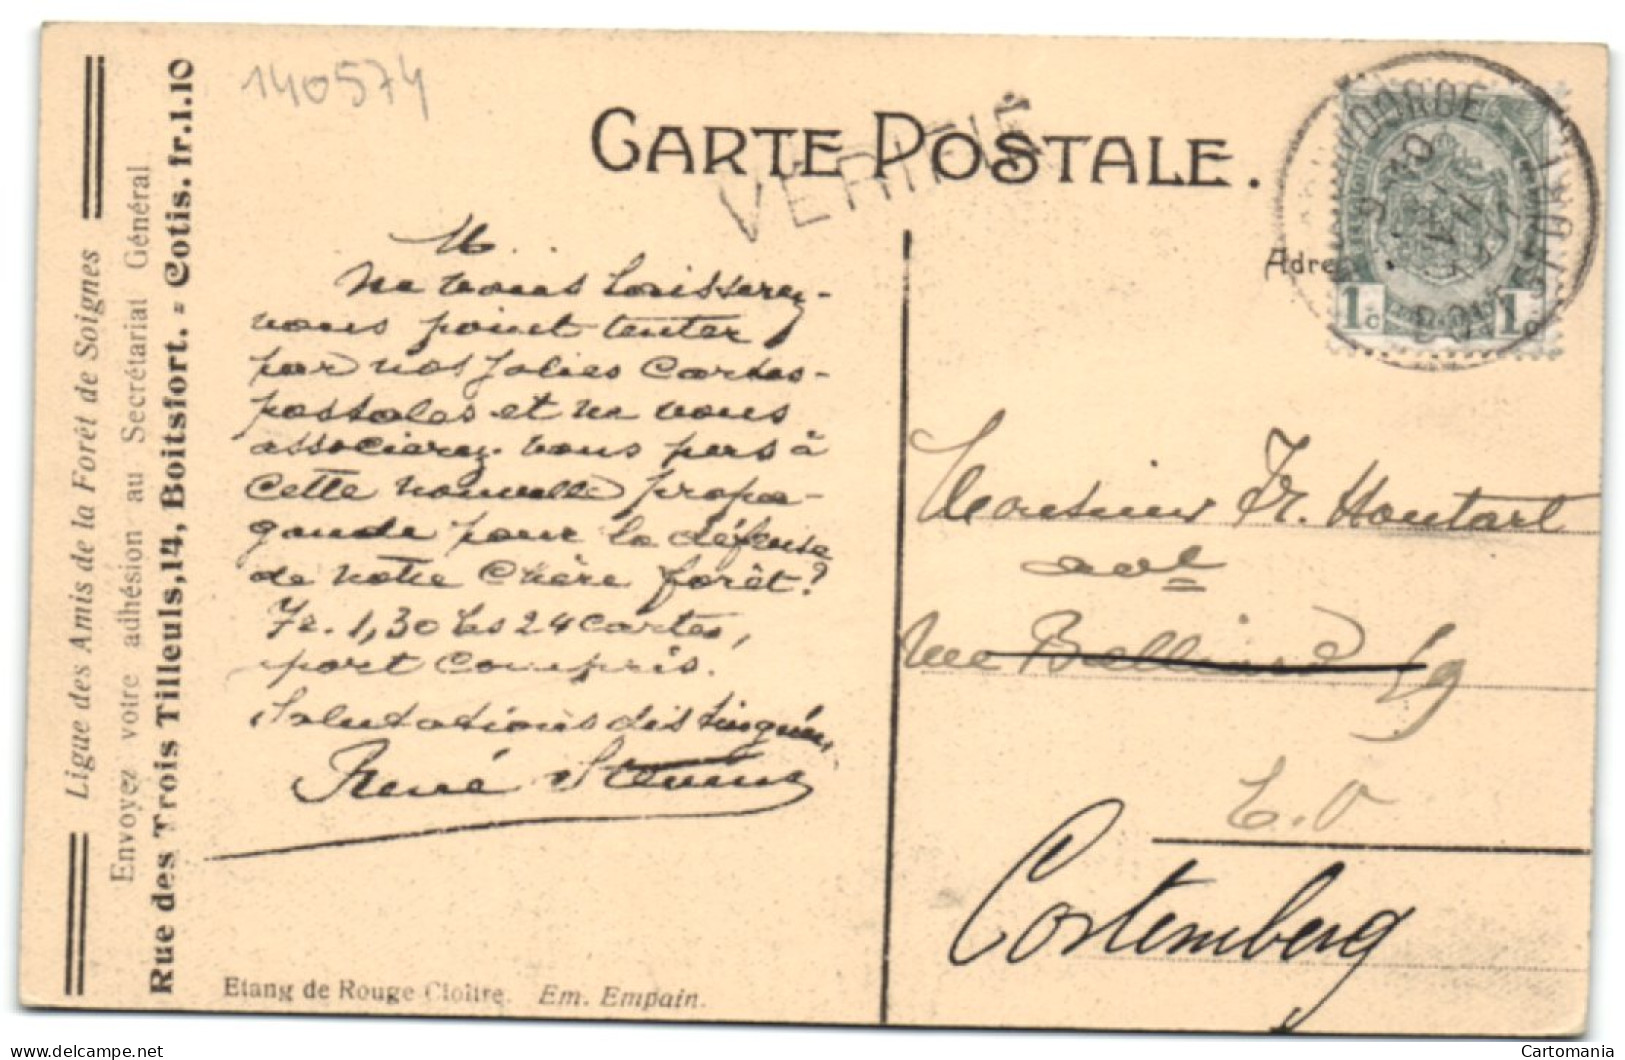 140574
CARTE POSTALE.
VERIFIÉ
Ligue des Amis de la Forêt de Soignes
Envoyez votre adhésion au Secrétariat Général
Rue des Trois Tilleuls, 14, Boitsfort. = Cotis. fr. 1.10
M.
Ne vous laisserez-
vous point tenter
par nos jolies Cartes-
postales et ne vous
associerez-vous pas à
cette nouvelle propa-
gande pour la défense
de notre Chère forêt?
Fr. 1,30 les 24 cartes,
port compris.
Salutations distinguées
René Stevens
Etang de Rouge Cloître. Em. Empain.
BOITSFORT
1c 1c
Monsieur Fr. Houtart
avl
rue Belliard 59
E.V
Cortemberg
Cartomania